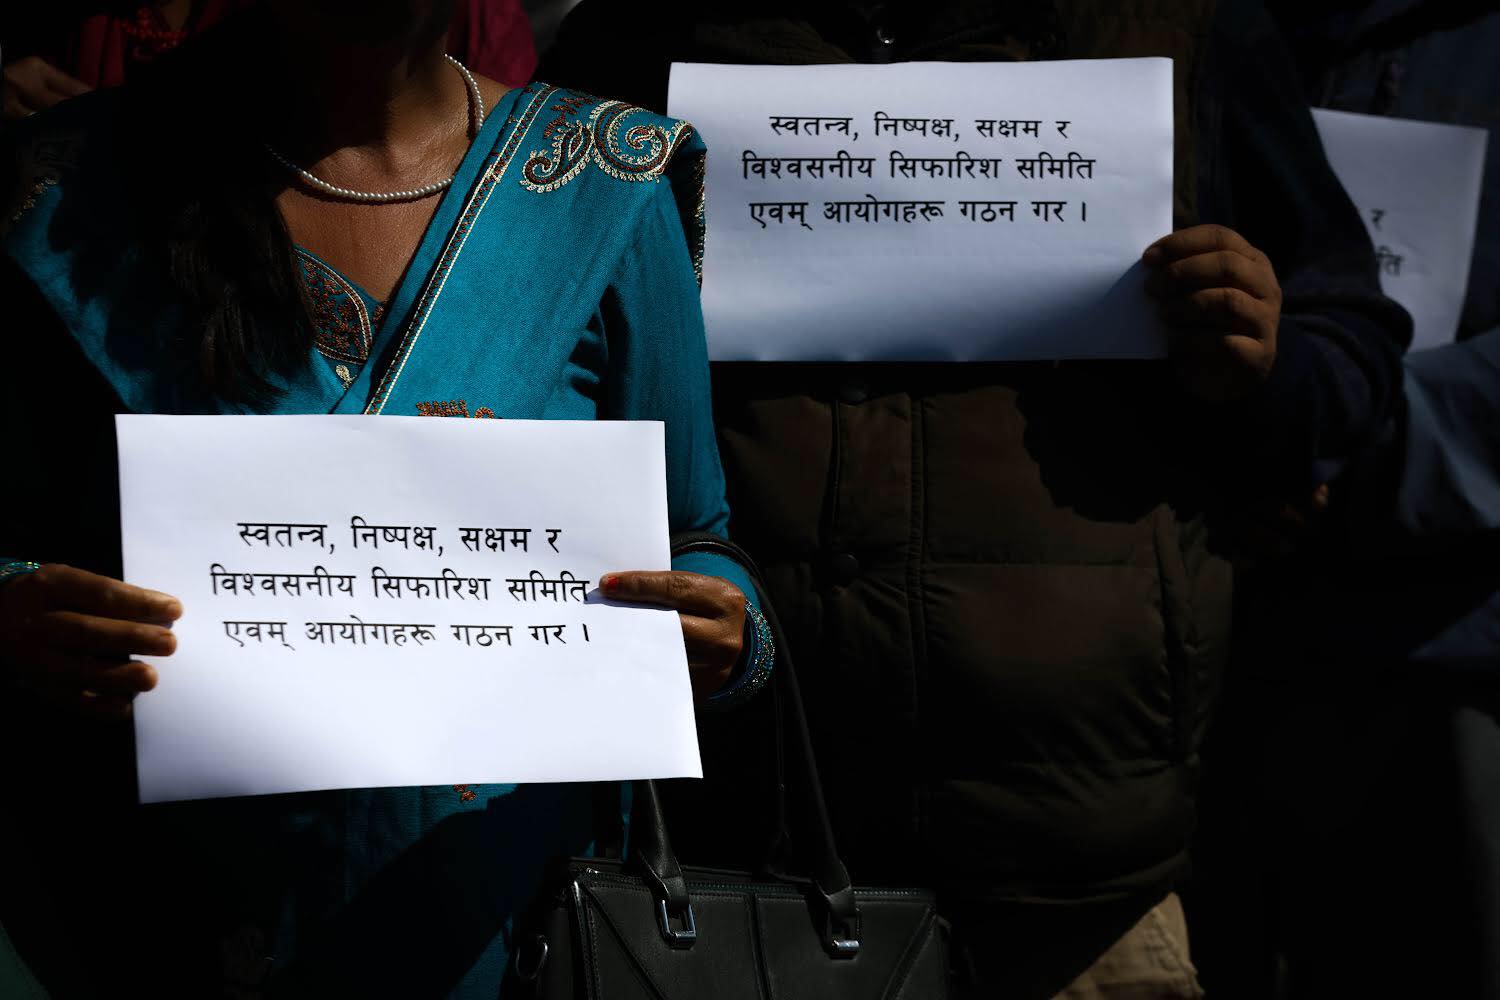 स्वतन्त्र, निष्पक्ष, सक्षम र
विश्वसनीय सिफारिश समिति
एवम् आयोगहरू गठन गर ।
स्वतन्त्र, निष्पक्ष, सक्षम र
विश्वसनीय सिफारिश समिति
एवम् आयोगहरू गठन गर ।
र